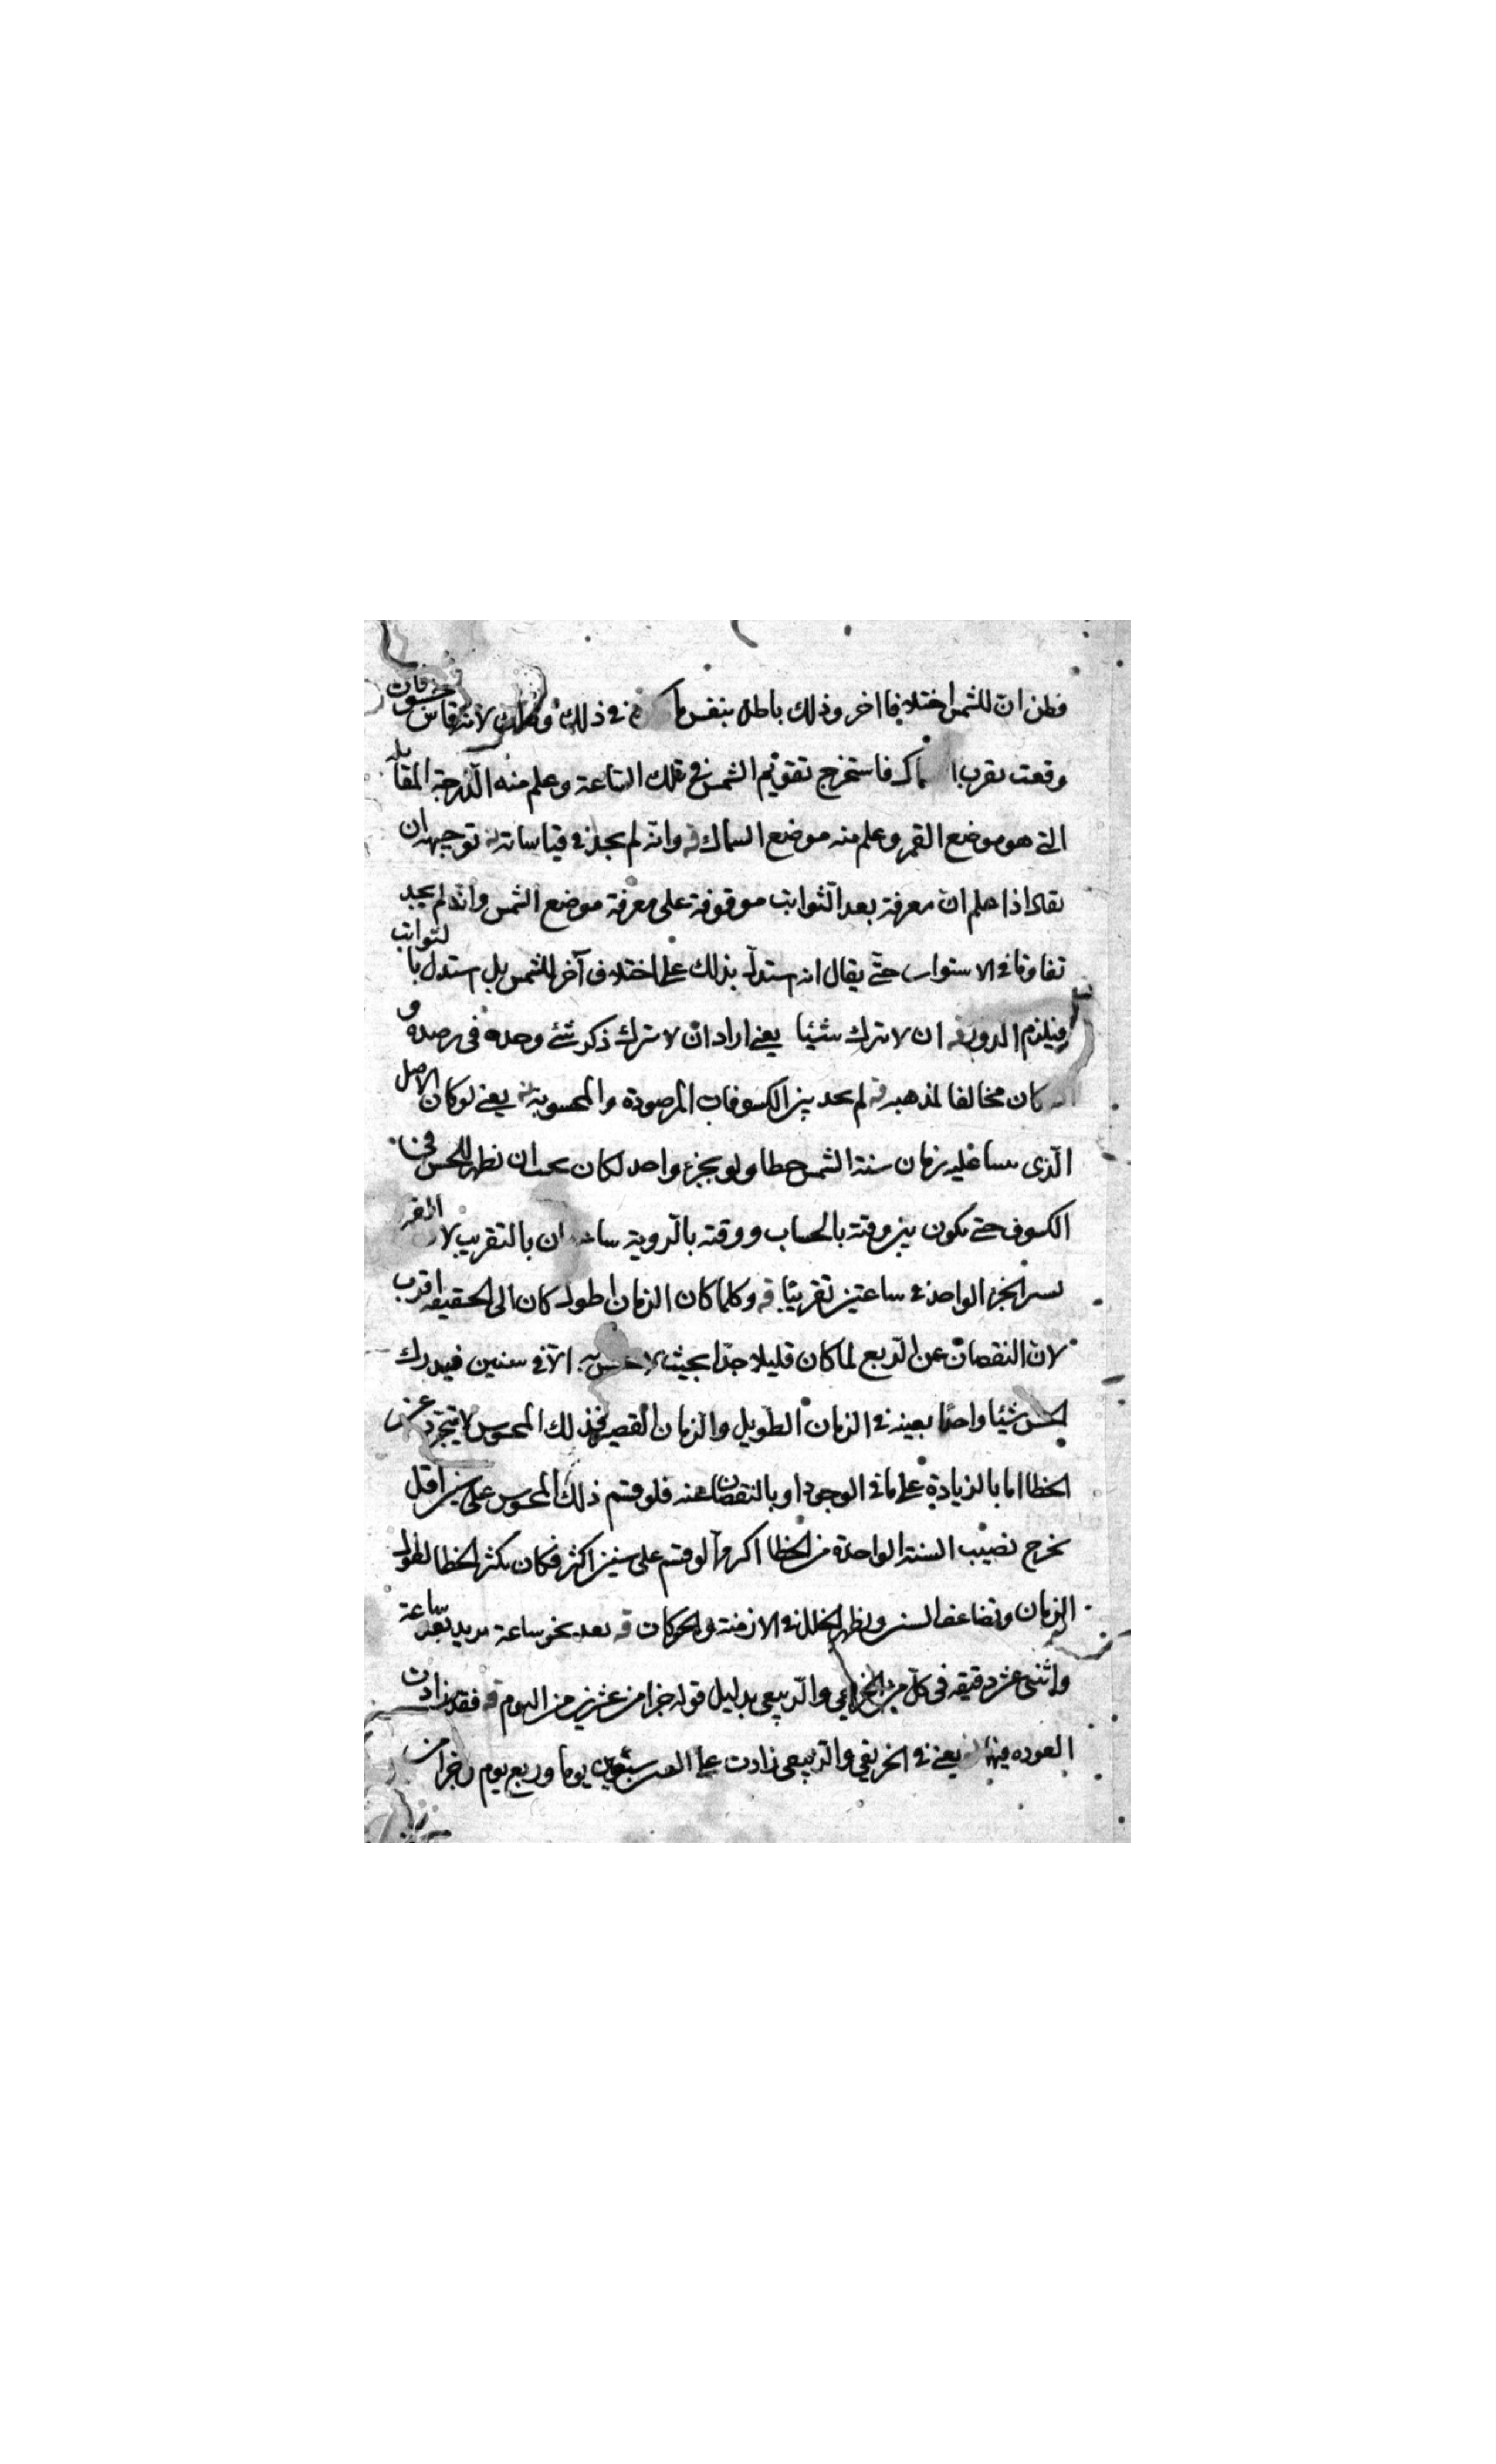 فظن ان للشمس اختلافا اخر وذلك باطل بنفس ما في ذلك وذلك لانه قاس خسوفات
وقعت بقرب السماك فاستخرج تقويم الشمس في تلك الساعة وعلم منه الدرجة المقابلة
التي هو موضع القمر وعلم منه موضع السماك قه وانه لم يجد في قياساته توجيهه ان
يقال اذا علم ان معرفة بعد الثوابت موقوفة على معرفة موضع الشمس وانه لم يجد
تفاوتا في الاستواب حتى يقال انه استدل بذلك على اختلاف آخر للشمس بل استدل بالثوابت
فيلزم الدور قه ان لا نترك شيئا يعني اراد ان لا نترك ذكر شئ وجده في رصده و
كان مخالفا لمذهبه قه لم نجد بين الكسوفات المرصودة والمحسوبة يعني لو كان الاصل
الذى بنينا عليه زمان سنة الشمس خطا ولو بجزء واحد لكان يجب ان يظهر للحس في زمان
الكسوف حتى يكون بين وقته بالحساب ووقته بالروية ساعتان بالتقريب لان القمر
يسير الجزء الواحد في ساعتين تقريبا قه وكلما كان الزمان اطول كان الى الحقيقة اقرب
لان النقصان عن الربع لما كان قليلا جدا بحيث لا يحس به الا في سنين فيدرك
الحس شيئا واحدا بعينه في الزمان الطويل والزمان القصير فخذ لك المحسوس لا يتجرد عن
الخطا اما بالزيادة على ما في الوجود او بالنقصان عنه فلو قسم ذلك المحسوس على سنين اقل
يخرج نصيب السنة الواحدة من الخطا اكثر مما لو قسم على سنين اكثر فكان يكثر الخطا لطول
الزمان وتضاعف السنين ويظهر الخلل في الازمنة والحركات قه بعد نحو ساعة يريد بعد ساعة
واثنى عشر دقيقه في كل من الخريفي والربيعي بدليل قوله جزا من عشرين من اليوم قه فقد زادت
العودة فيهما يعني في الخريفي والربيعي زادت على سبعين يوما وربع يوم جزا من